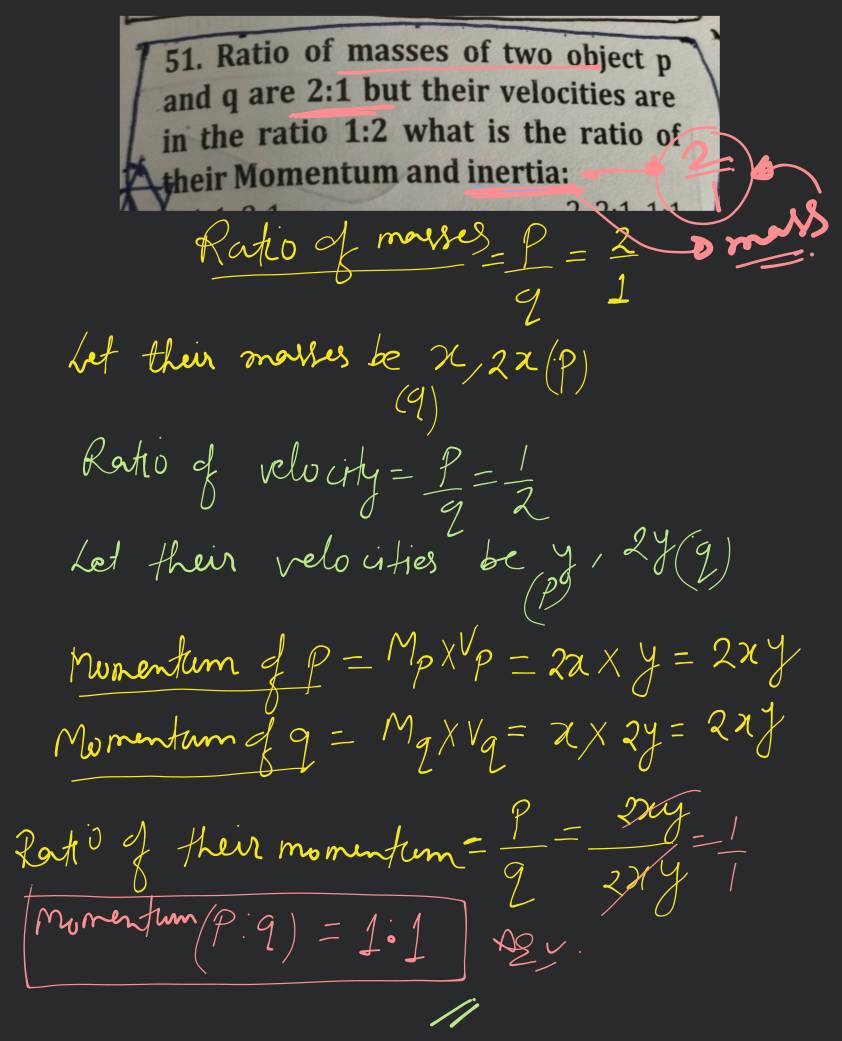 51. Ratio of masses of two object p
and q are 2:1 but their velocities are
in the ratio 1:2 what is the ratio of
their Momentum and inertia:
2/1
mass
Ratio of masses = P/q = 2/1
Let their masses be x, 2x (P)
(q)
Ratio of velocity = P/q = 1/2
Let their velocities be y, 2y (q)
(P)
Momentum of P = Mp x Vp = 2x x y = 2xy
Momentum of q = Mq x Vq = x x 2y = 2xy
Ratio of their momentum = P/q = 2xy/2xy = 1/1
Momentum (P:q) = 1:1